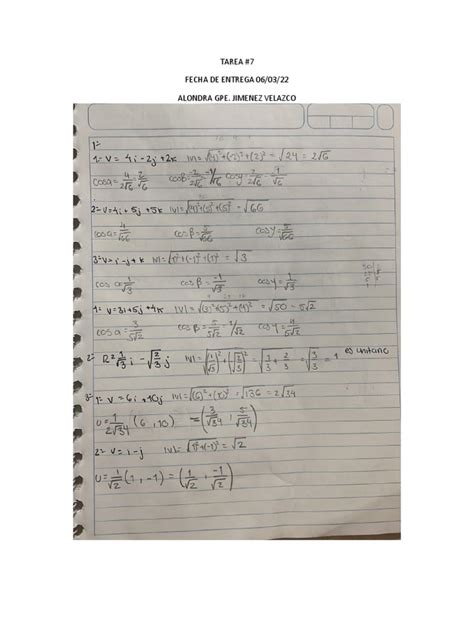 TAREA #7
FECHA DE ENTREGA 06/03/22
ALONDRA GPE. JIMENEZ VELAZCO
1-
1- V = 4i - 2j + 2k |V| = √(4)² + (-2)² + (2)² = √24 = 2√6
cos α = 4/2√6 = 2/√6 cos β = -2/2√6 = -1/√6 cos γ = 2/2√6 = 1/√6
2- V = 4i + 5j + 5k |V| = √(4)² + (5)² + (5)² = √66
cos α = 4/√66 cos β = 5/√66 cos γ = 5/√66
3- V = i - j + k |V| = √(1)² + (-1)² + (1)² = √3
cos α = 1/√3 cos β = -1/√3 cos γ = 1/√3
V = 3i + 5j + 4k |V| = √(3)² + (5)² + (4)² = √50 = 5√2
cos α = 3/5√2 cos β = 5/5√2 = 1/√2 cos γ = 4/5√2
2- i - √2/3 j = √1/3 + 2/3 = √3/3 = 1 es unitario
3- 1- V = 6i + 10j = √136 = 2√34
U = 1/2√34 (6, 10) = (3/√34, 5/√34)
2- V = i - j |V| = √(1)² + (-1)² = √2
U = 1/√2 (1, -1) = (1/√2, -1/√2)